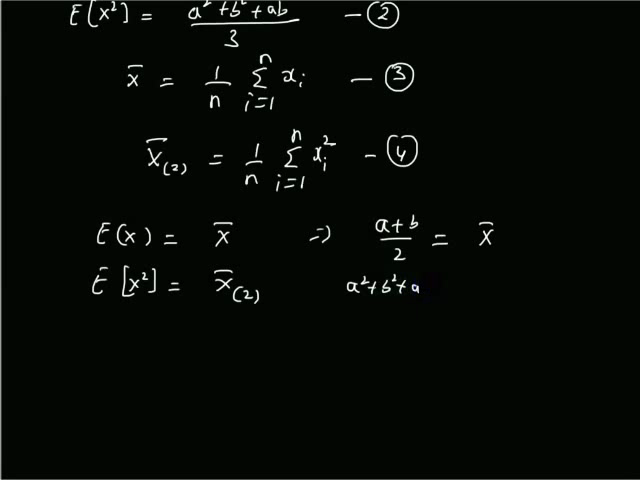 E[x²] = a²+b²+ab / 3 — ②
x̄ = 1/n Σ_{i=1}^{n} xᵢ — ③
X̄₍₂₎ = 1/n Σ_{i=1}^{n} xᵢ² — ④
E(x) = X̄ ⇒ a+b / 2 = X̄
E[x²] = X̄₍₂₎ a²+b²+a